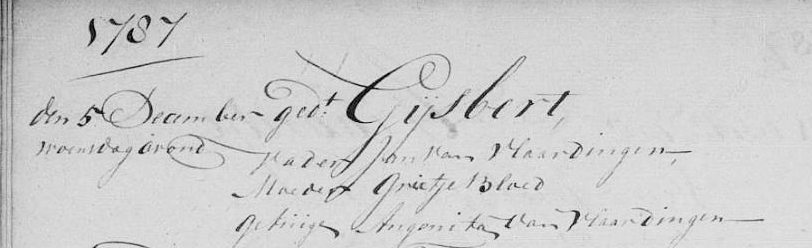 1787
den 5 December ged.t Gijsbert,
woensdag avond Vader Jan van Vlaardingen,
Moeder Grietje Bloed
getuige Angonita van Vlaardingen